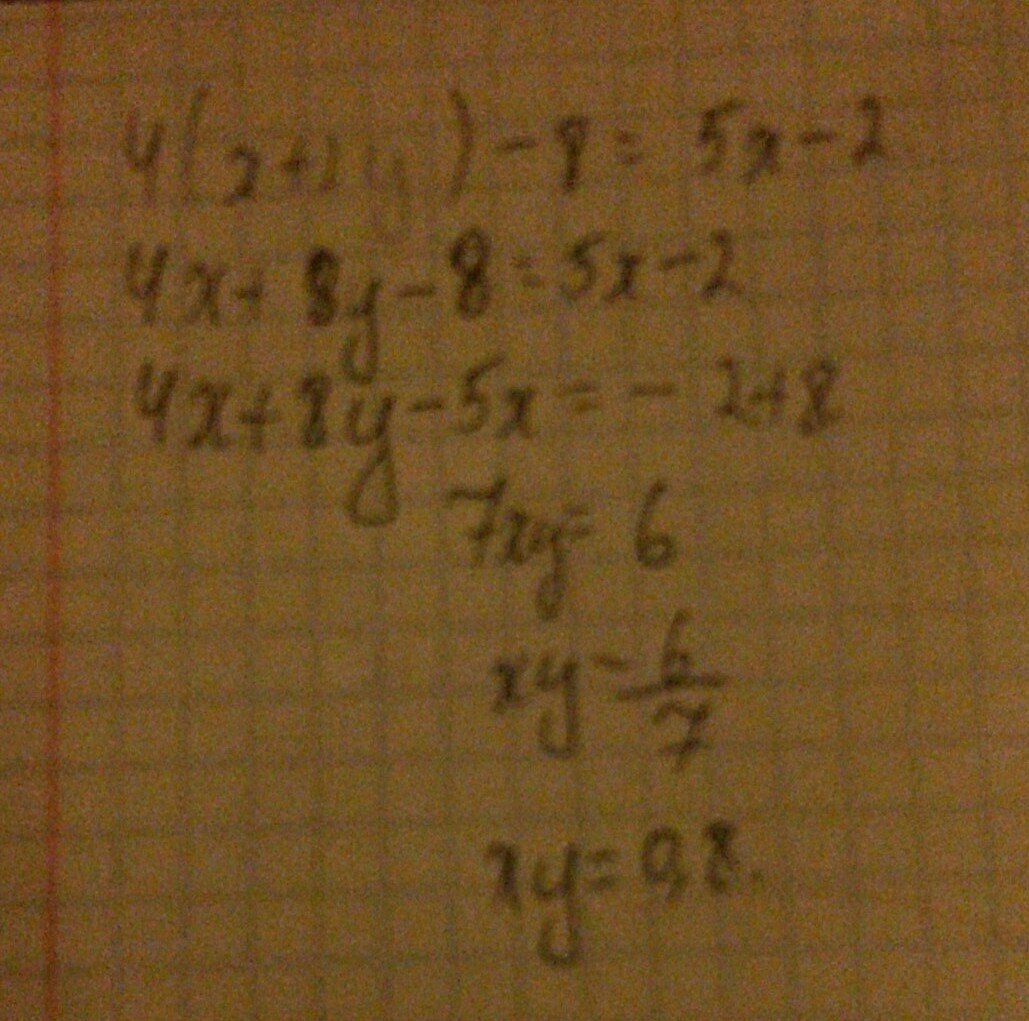 4(x+2y)-8=5x-2
4x+8y-8=5x-2
4x+8y-5x=-2+8
7xy=6
xy=6/7
xy=0,8.